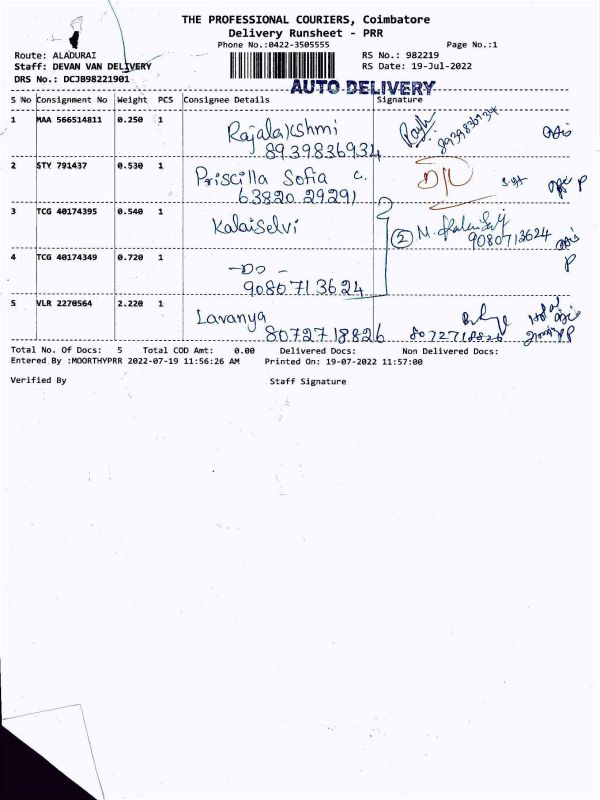 THE PROFESSIONAL COURIERS, Coimbatore
Delivery Runsheet - PRR
Phone No.:0422-3505555 Page No.:1
Route: ALADURAI RS No.: 982219
Staff: DEVAN VAN DELIVERY RS Date: 19-Jul-2022
DRS No.: DCJB98221901
AUTO DELIVERY
S No Consignment No Weight PCS Consignee Details Signature
1 MAA 566514811 0.250 1
Rajalakshmi
8939836934 8939836934
2 STY 791437 0.530 1
Priscilla Sofia C.
63820 29291
3 TCG 40174395 0.540 1
Kalaiselvi
2 M. Kalaiselvi
9080713624
4 TCG 40174349 0.720 1
-Do-
9080713624
P
5 VLR 2270564 2.220 1
Lavanya
8072718826 8072718826
Total No. Of Docs: 5 Total COD Amt: 0.00 Delivered Docs: Non Delivered Docs:
Entered By :MOORTHYPRR 2022-07-19 11:56:26 AM Printed On: 19-07-2022 11:57:00
Verified By Staff Signature